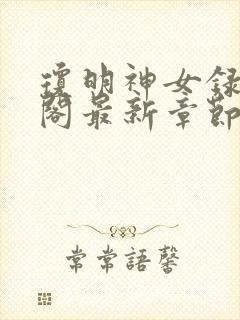 瓊明神女録
閣最新章節
常常語馨